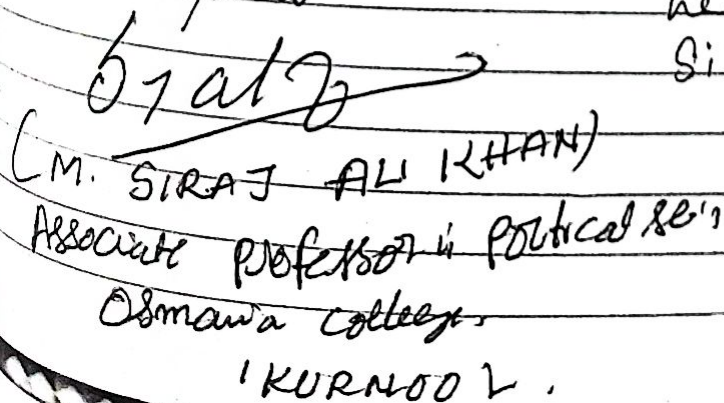 Si
(M. SIRAJ ALI KHAN)
Associate professor in Political Sci
Osmania College,
KURNOOL.